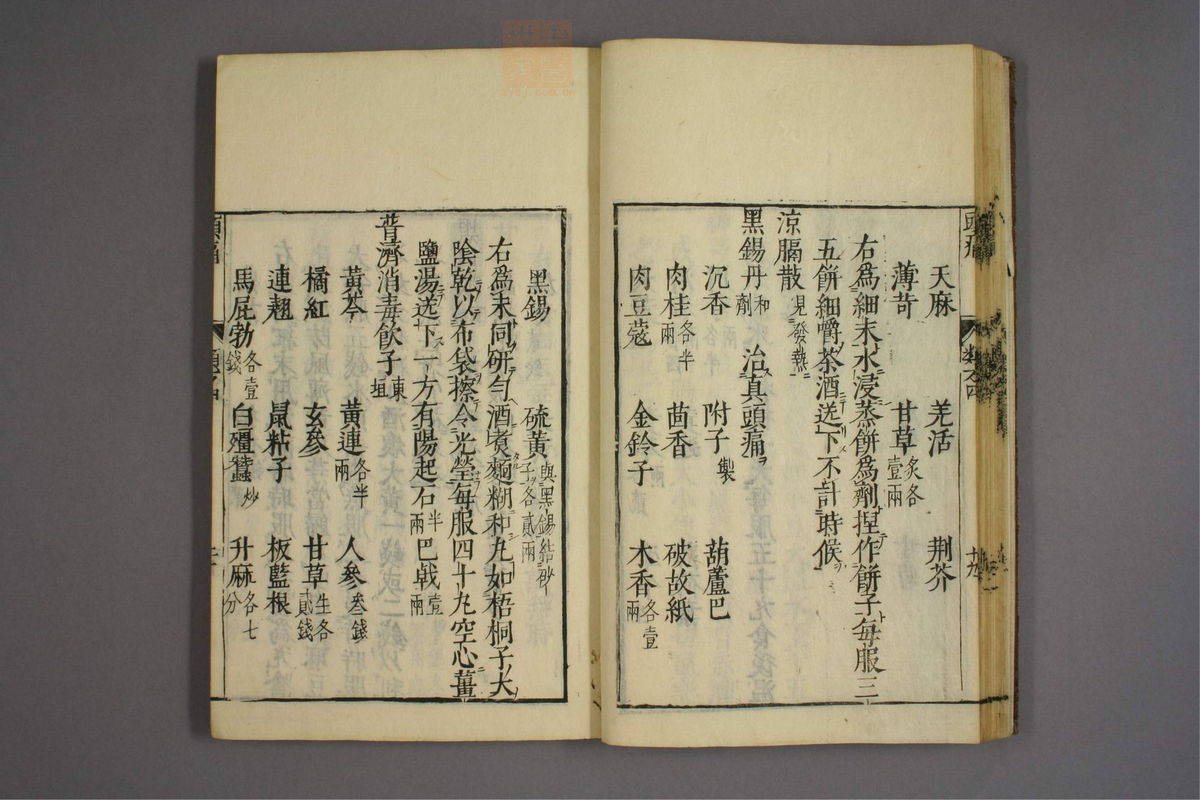 天麻 羌活 荆芥
薄苛 甘草炙各壹兩
右爲細末水浸蒸餅爲劑捏作餅子每服三
五餅細嚼茶酒送下不計時候
涼膈散見發熱
黑錫丹和劑 治真頭痛
沉香 附子製 葫蘆巴
肉桂各半兩 茴香 破故紙
肉豆蔻 金鈴子 木香各壹兩
黑錫 硫黃與黑錫結砂子各貳兩
右爲末同研勻酒煑麵糊和丸如梧桐子大
陰乾以布袋擦令光瑩每服四十丸空心薑
鹽湯送下一方有陽起石半兩巴戟壹兩
普濟消毒飲子東垣
黃芩 黃連各半兩 人參叁錢
橘紅 玄參 甘草生各貳錢
連翹 鼠粘子 板藍根
馬屁勃各壹錢 白殭蠶炒 升麻各七分
頭痛